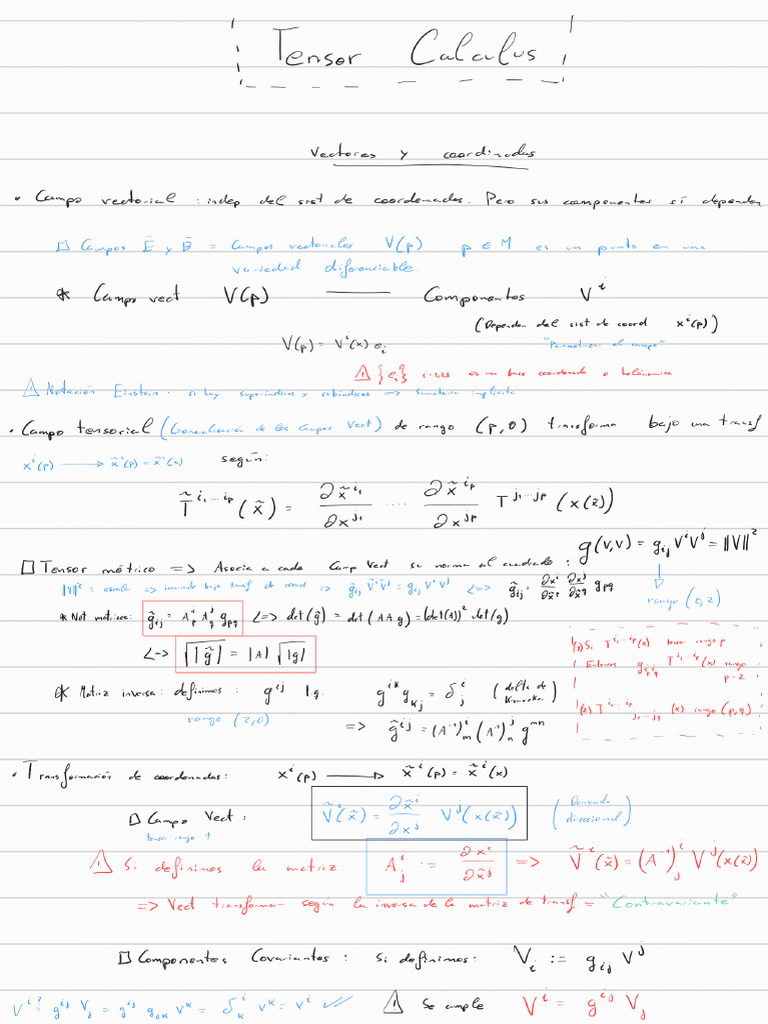 Tensor Calculus
Vectores y coordinadas
• Campo vectorial : indep del sist de coordenadas. Pero sus componentes sí dependen
□ Campos Ē y B̄ = Campos vectoriales V(p) p ∈ M es un punto en una
variedad diferenciable
* Campo vect V(p) —— Componentes Vⁱ
(Dependen del sist de coord xⁱ(p))
V(p) = Vⁱ(x) eᵢ "Parametrizar el campo"
⚠ {eᵢ} i=1,2,3 es una base coordenada o holónomica
⚠ Notación Einstein: si hay superíndices y subíndices => Sumatoria implícita
• Campo tensorial (Generalización de los Campos Vect) de rango (p,0) transforma bajo una transf
xⁱ(p) → x̃ⁱ(p) = x̃ⁱ(x) según:
T̃^{i₁...iₚ}(x̃) = ∂x̃^{i₁}/∂x^{j₁} .... ∂x̃^{iₚ}/∂x^{jₚ} T^{j₁...jₚ}(x(x̃))
□ Tensor métrico => Asocia a cada Camp Vect su norma al cuadrado : g(v,v) = g_{ij} VⁱVʲ = ||V||²
||V||² = escalar => invariante bajo transf de coord => g̃_{ij} ṼⁱṼʲ = g_{ij} VⁱVʲ <=> g̃_{ij} = ∂xᵖ/∂x̃ⁱ ∂x^q/∂x̃ʲ g_{pq}
rango (0,2)
* Not matrices: g̃_{ij} = Aᵖᵢ A^q_j g_{pq} <=> det(g̃) = det(AAg) = (det(A))² det(g)
<-> √|g̃| = |A| √|g|
(1) Si T^{i₁...iₚ}(x) tensor rango p
Entonces g_{i₁i₂} T^{i₁...iₚ}(x) rango p-2
(2) T^{i₁...iₚ}_{j₁...j_q}(x) rango (p,q)
* Matriz inversa: definimos : g^{ij} t.q. g^{ik} g_{kj} = δⁱⱼ (delta de Kronecker)
rango (2,0) => g̃^{ij} = (A⁻¹)ⁱₘ (A⁻¹)ʲₙ g^{mn}
• Transformación de coordenadas: xⁱ(p) → x̃ⁱ(p) = x̃ⁱ(x)
□ Campo Vect : Ṽⁱ(x̃) = ∂x̃ⁱ/∂xʲ Vʲ(x(x̃)) (Derivada direccional)
tensor rango 1
⚠ Si definimos la matriz: Aⁱⱼ := ∂xⁱ/∂x̃ʲ => Ṽⁱ(x̃) = (A⁻¹)ⁱⱼ Vʲ(x(x̃))
=> Vect transforman según la inversa de la matriz de transf = "Contravariante"
□ Componentes Covariantes : Si definimos: Vᵢ := g_{ij} Vʲ
Vⁱ =? g^{ij} Vⱼ = g^{ij} g_{jk} Vᵏ = δⁱₖ Vᵏ = Vⁱ ✓ ⚠ Se cumple Vⁱ = g^{ij} Vⱼ